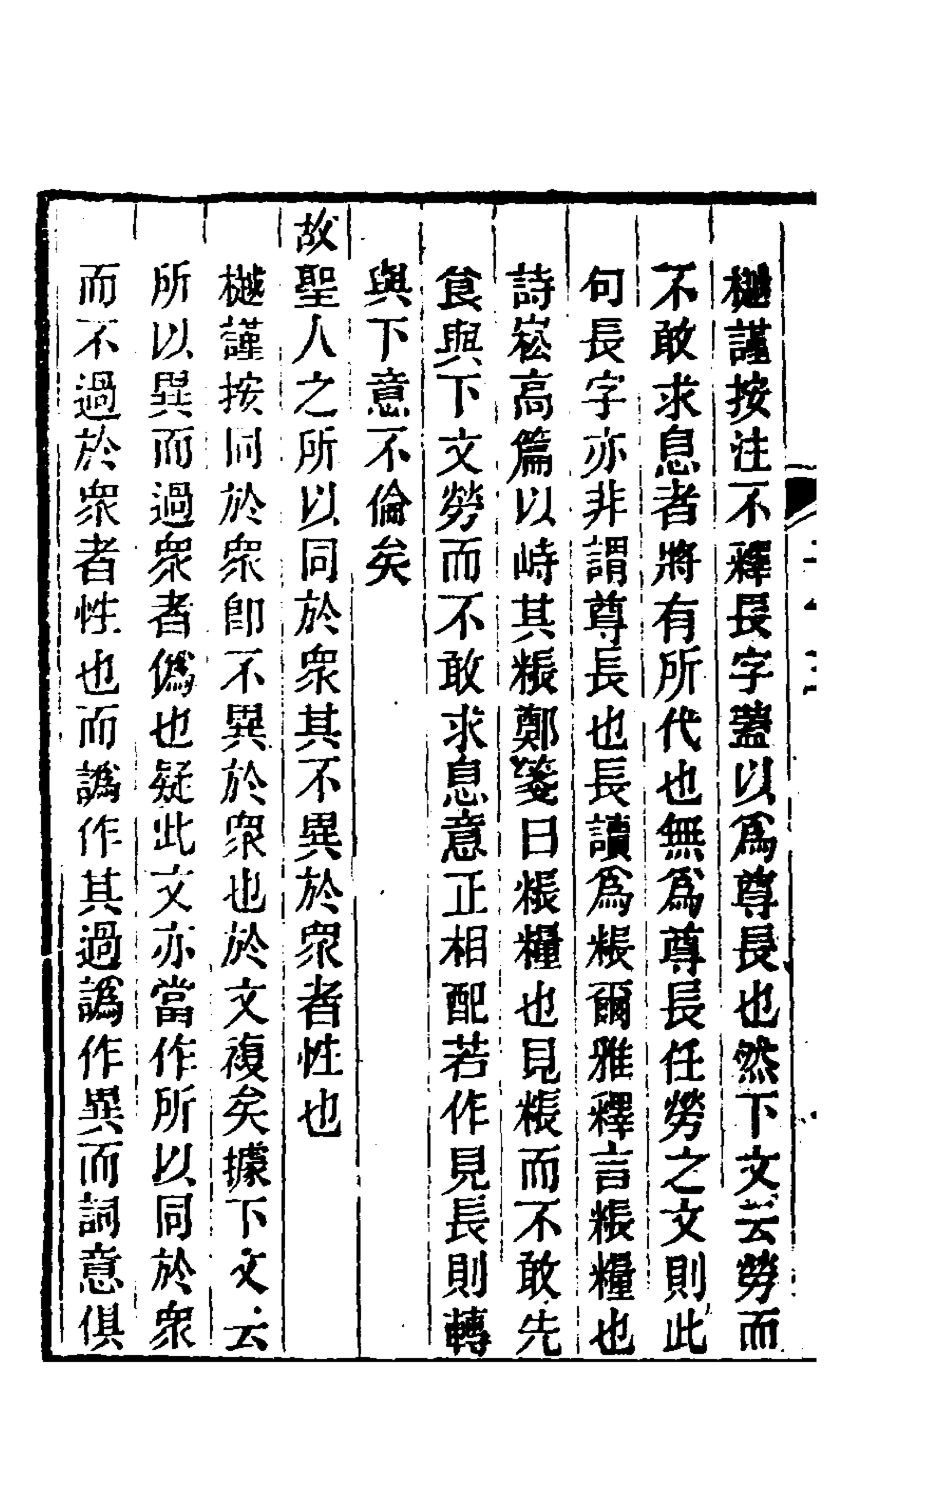 樾謹按注不釋長字蓋以爲尊長也然下文云勞而
不敢求息者將有所代也無爲尊長任勞之文則此
句長字亦非謂尊長也長讀爲粻爾雅釋言粻糧也
詩崧高篇以峙其粻鄭箋曰粻糧也見粻而不敢先
食與下文勞而不敢求息意正相配若作見長則轉
與下意不倫矣
故聖人之所以同於眾其不異於眾者性也
樾謹按同於眾卽不異於眾也於文複矣據下文云
所以異而過眾者僞也疑此文亦當作所以同於眾
而不過於眾者性也而譌作其過譌作異而詞意俱